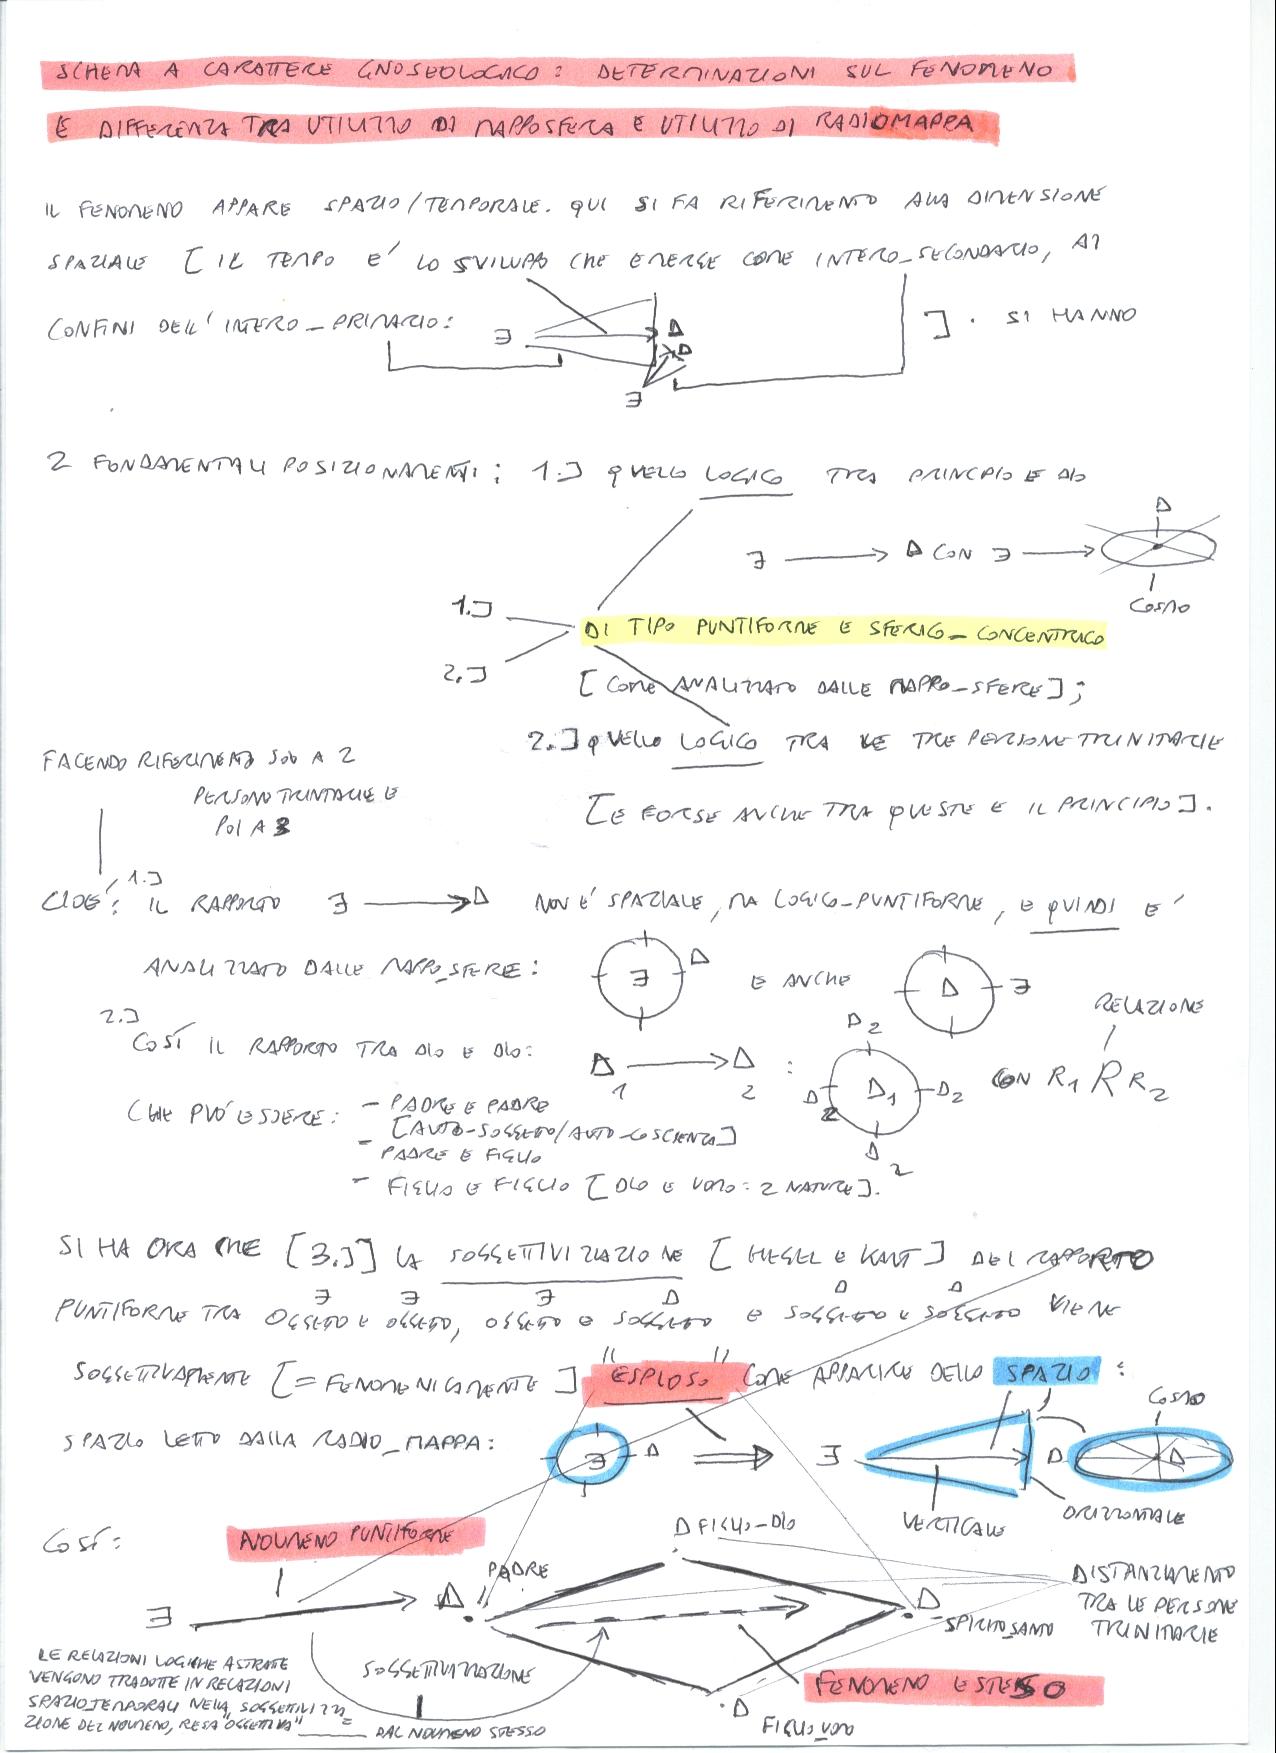 SCHEMA A CARATTERE GNOSEOLOGICO: DETERMINAZIONI SUL FENOMENO
E DIFFERENZA TRA UTILIZZO DI MAPPOSFERA E UTILIZZO DI RADIOMAPPA
IL FENOMENO APPARE SPAZIO/TEMPORALE. QUI SI FA RIFERIMENTO ALLA DIMENSIONE
SPAZIALE [IL TEMPO E' LO SVILUPPO CHE EMERGE COME INTERO_SECONDARIO, AI
CONFINI DELL'INTERO_PRIMARIO: ∃ Δ ]. SI HANNO
Δ
∃
2 FONDAMENTALI POSIZIONAMENTI; 1.] QUELLO LOGICO TRA PRINCIPIO E DIO
Δ
∃ → Δ CON ∃ →
COSMO
1.]
DI TIPO PUNTIFORME E SFERICO_CONCENTRICO
2.]
[COME ANALIZZATO DALLE MAPPO_SFERE];
2.] QUELLO LOGICO TRA LE TRE PERSONE TRINITARIE
[E FORSE ANCHE TRA QUESTE E IL PRINCIPIO].
FACENDO RIFERIMENTO SOLO A 2
PERSONE TRINITARIE E
POI A 3
CIOE': 1.] IL RAPPORTO ∃ → Δ NON E' SPAZIALE, MA LOGICO-PUNTIFORME, E QUINDI E'
ANALIZZATO DALLE MAPPO_SFERE: ∃ Δ E ANCHE Δ ∃
RELAZIONE
2.]
COSÍ IL RAPPORTO TRA DIO E DIO: Δ1 → Δ2 : Δ2 Δ2 Δ1 Δ2 Δ2 CON R1 R R2
CHE PUO' ESSERE: - PADRE E PADRE
[AUTO-SOGGETTO/AUTO-COSCIENZA]
- PADRE E FIGLIO
- FIGLIO E FIGLIO [DIO E UOMO: 2 NATURE].
SI HA ORA CHE [3.]] LA SOGGETTIVIZZAZIONE [HEGEL E KANT] DEL RAPPORTO
∃ ∃ ∃ Δ Δ Δ
PUNTIFORME TRA OGGETTO E OGGETTO, OGGETTO E SOGGETTO E SOGGETTO E SOGGETTO VIENE
SOGGETTIVAMENTE [= FENOMENICAMENTE] "ESPLOSO" COME APPARIRE DELLO SPAZIO:
COSMO
SPAZIO LETTO DALLA RADIO_MAPPA: ∃ Δ ⇒ ∃ Δ Δ
VERTICALE
ORIZZONTALE
COSÍ:
NOUMENO PUNTIFORME
Δ FIGLIO-DIO
PADRE
∃ → Δ
Δ
SPIRITO_SANTO
DISTANZIAMENTO
TRA LE PERSONE
TRINITARIE
LE RELAZIONI LOGICHE ASTRATE
VENGONO TRADOTTE IN RELAZIONI
SPAZIO_TEMPORALI NELLA SOGGETTIVIZZA=
ZIONE DEL NOUMENO, RESA "OGGETTIVA"
SOGGETTIVIZZAZIONE
DAL NOUMENO STESSO
FENOMENO ESTESO
Δ
FIGLIO_UOMO